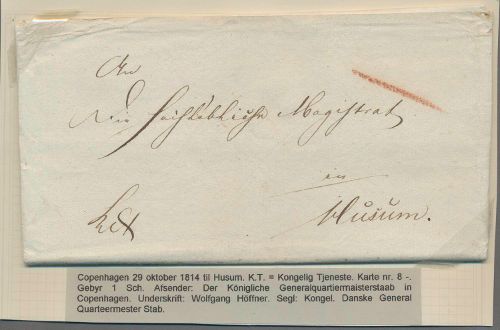 An
die hochlöbliche Magistrat
in
Husum.
Copenhagen 29 oktober 1814 til Husum. K.T. = Kongelig Tjeneste. Karte nr. 8 -.
Gebyr 1 Sch. Afsender: Der Königliche Generalquartiermaisterstaab in
Copenhagen. Underskrift: Wolfgang Höffner. Segl: Kongel. Danske General
Quarteermester Stab.